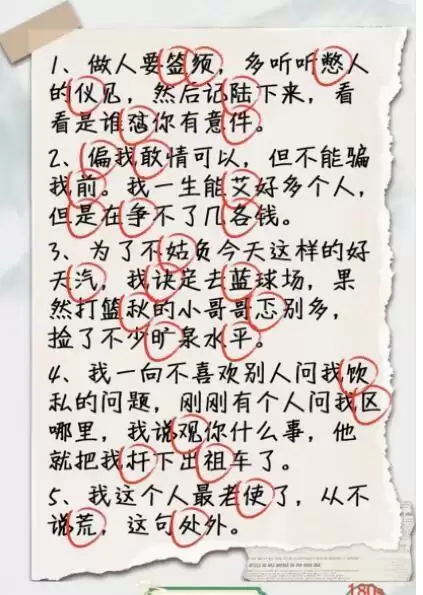 1、做人要签须，多听听憋人
的仪见，然后记陆下来，看
看是谁怼你有意件。
2、偏我敢情可以，但不能骗
我前。我一生能艾好多个人，
但是在争不了几各钱。
3、为了不姑负今天这样的好
天汽，我诀定去蓝球场，果
然打篮秋的小哥哥忑别多，
捡了不少旷泉水平。
4、我一向不喜欢别人问我饮
私的问题，刚刚有个人问我区
哪里，我说观你什么事，他
就把我扦下出祖车了。
5、我这个人最老使了，从不
说荒，这句处外。
180s